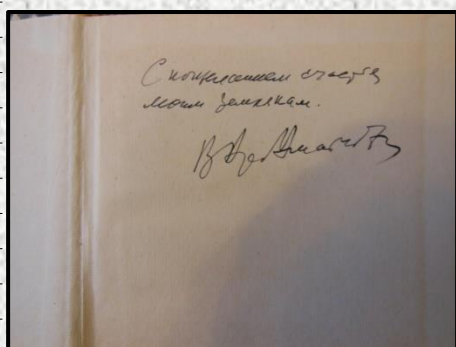 С пожеланием счастья
моим землякам.